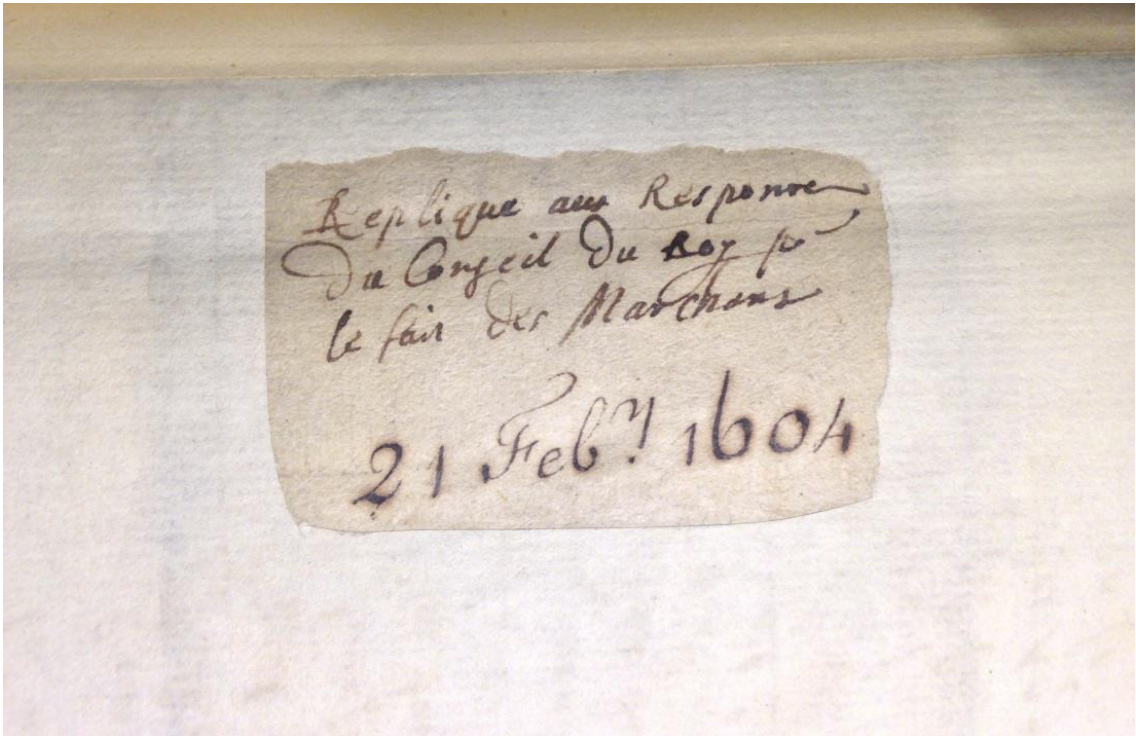 Replique aux Responce
Du Conseil Du Roy pr
le fait des Marchans
21 Feb.ry 1604